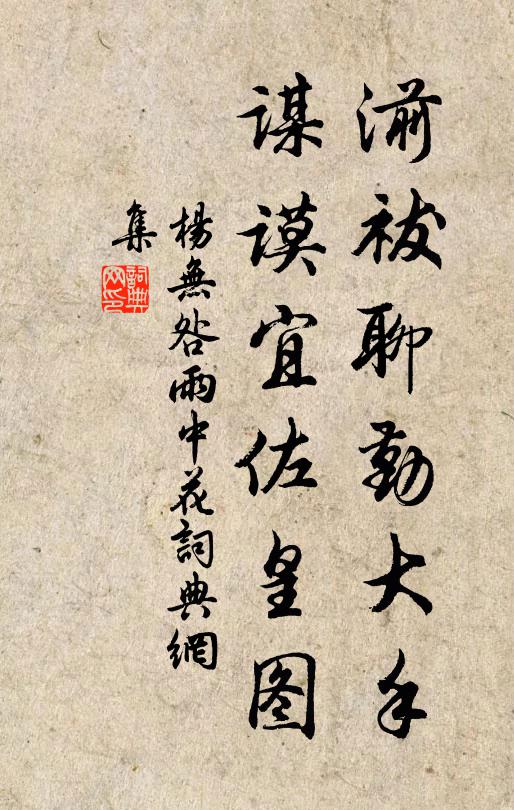 湔祓聊勤大手
谋谟宜佐皇图
楊無咎雨中花詞典網
集
詞典网印